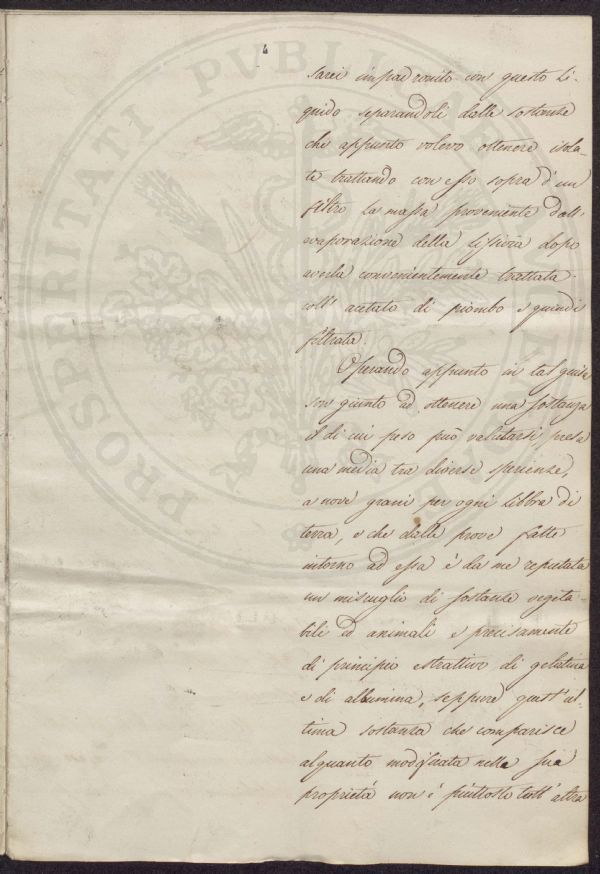 4
sarei impadronito con questo li-
quido separandoli dalle sostanze
che appunto volevo ottenere isola-
te trattando con esso sopra d'un
filtro la massa proveniente dall'
evaporazione della lissivia dopo
averla convenientemente trattata
coll' acetato di piombo e quindi
filtrata.
Operando appunto in tal guisa
son giunto ad ottenere una sostanza
il di cui peso può valutarsi, presa
una media tra diverse sperienze,
a nove grani per ogni libbra di
terra, e che dalle prove fatte
intorno ad essa è da me reputata
un miscuglio di sostanze vegeta-
bili ed animali e precisamente
di principio estrattivo di gelatina
e di albumina, seppure quest' ul-
tima sostanza che comparisce
alquanto modificata nelle sue
proprietà non è piuttosto tutt' altra
PROSPERITATI PVBLICAE